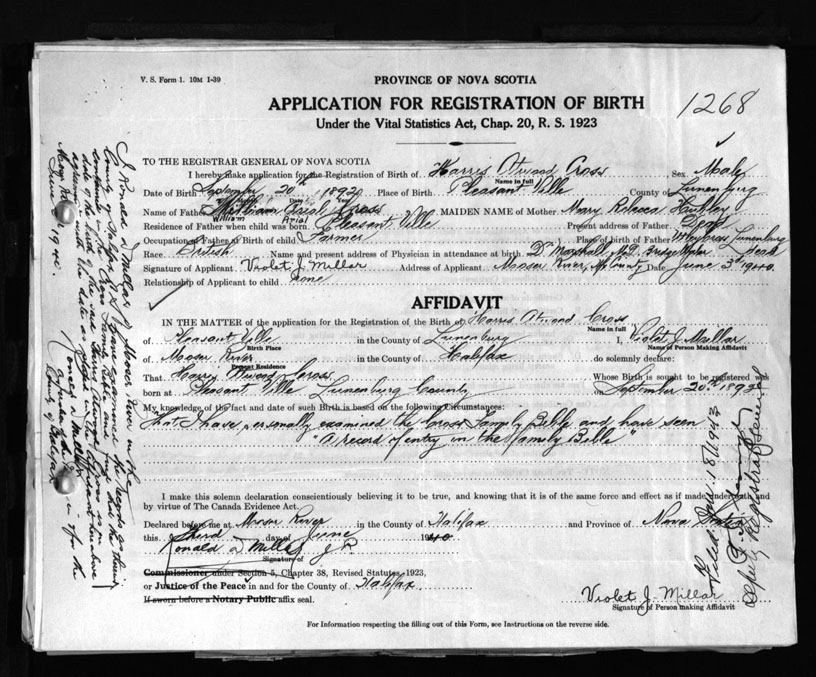 V. S. Form 1. 10M 1-39
PROVINCE OF NOVA SCOTIA
APPLICATION FOR REGISTRATION OF BIRTH
1268
Under the Vital Statistics Act, Chap. 20, R. S. 1923
TO THE REGISTRAR GENERAL OF NOVA SCOTIA
I hereby make application for Registration of Birth of Harris Atwood Cross Sex Male
Name in full
Date of Birth September 20th 1892 Place of Birth Pleasant Ville County of Lunenburg
Name of Father William Cross MAIDEN NAME of Mother Mary Rebecca
William Arial
Residence of Father when child was born Pleasant Ville Present address of Father
Occupation of Father at Birth of child Farmer Place of birth of Father Lunenburg
Race British Name and present address of Physician in attendance at Birth Dr Marshall, M.D. Bridgewater
Signature of Applicant Violet J. Millar Address of Applicant Mooser River, Hfx County Date June 3rd 1940.
Relationship of Applicant to child none
AFFIDAVIT
IN THE MATTER of the application for the Registration of the Birth of Harris Atwood Cross
Name in full
of Pleasant Ville in the County of Lunenburg I, Violet J. Millar
Birth Place
Name of Person Making Affidavit
of Mooser River in the County of Halifax do solemnly declare:
Present Residence
That Harris Atwood Cross Whose Birth is sought to be registered was
born at Pleasant Ville Lunenburg County on September 20th 1892
My knowledge of the fact and date of such Birth is based on the following Circumstances:
That I have personally examined the Cross Family Bible and have seen
"A record of entry in the family Bible"
I make this solemn declaration conscientiously believing it to be true, and knowing that it is of the same force and effect as if made under oath and
by virtue of The Canada Evidence Act.
Declared before me at Mooser River in the County of Halifax and Province of Nova Scotia
this Third day of June 1940
Ronald D Miller J.P.
Signature of
Commissioner under Section 5, Chapter 38, Revised Statutes, 1923,
or Justice of the Peace in and for the County of Halifax
If sworn before a Notary Public affix seal.
Violet J. Millar
Signature of Person making Affidavit
For Information respecting the filling out of this Form, see Instructions on the reverse side.
I Ronald D Miller of Mooser River in the
County of Halifax N.S. have examined the records
in the Cross Family Bible and find that
date of the birth
with the date
Ronald D Miller
County of Halifax
June 1940.
Filed
Deputy Registrar General